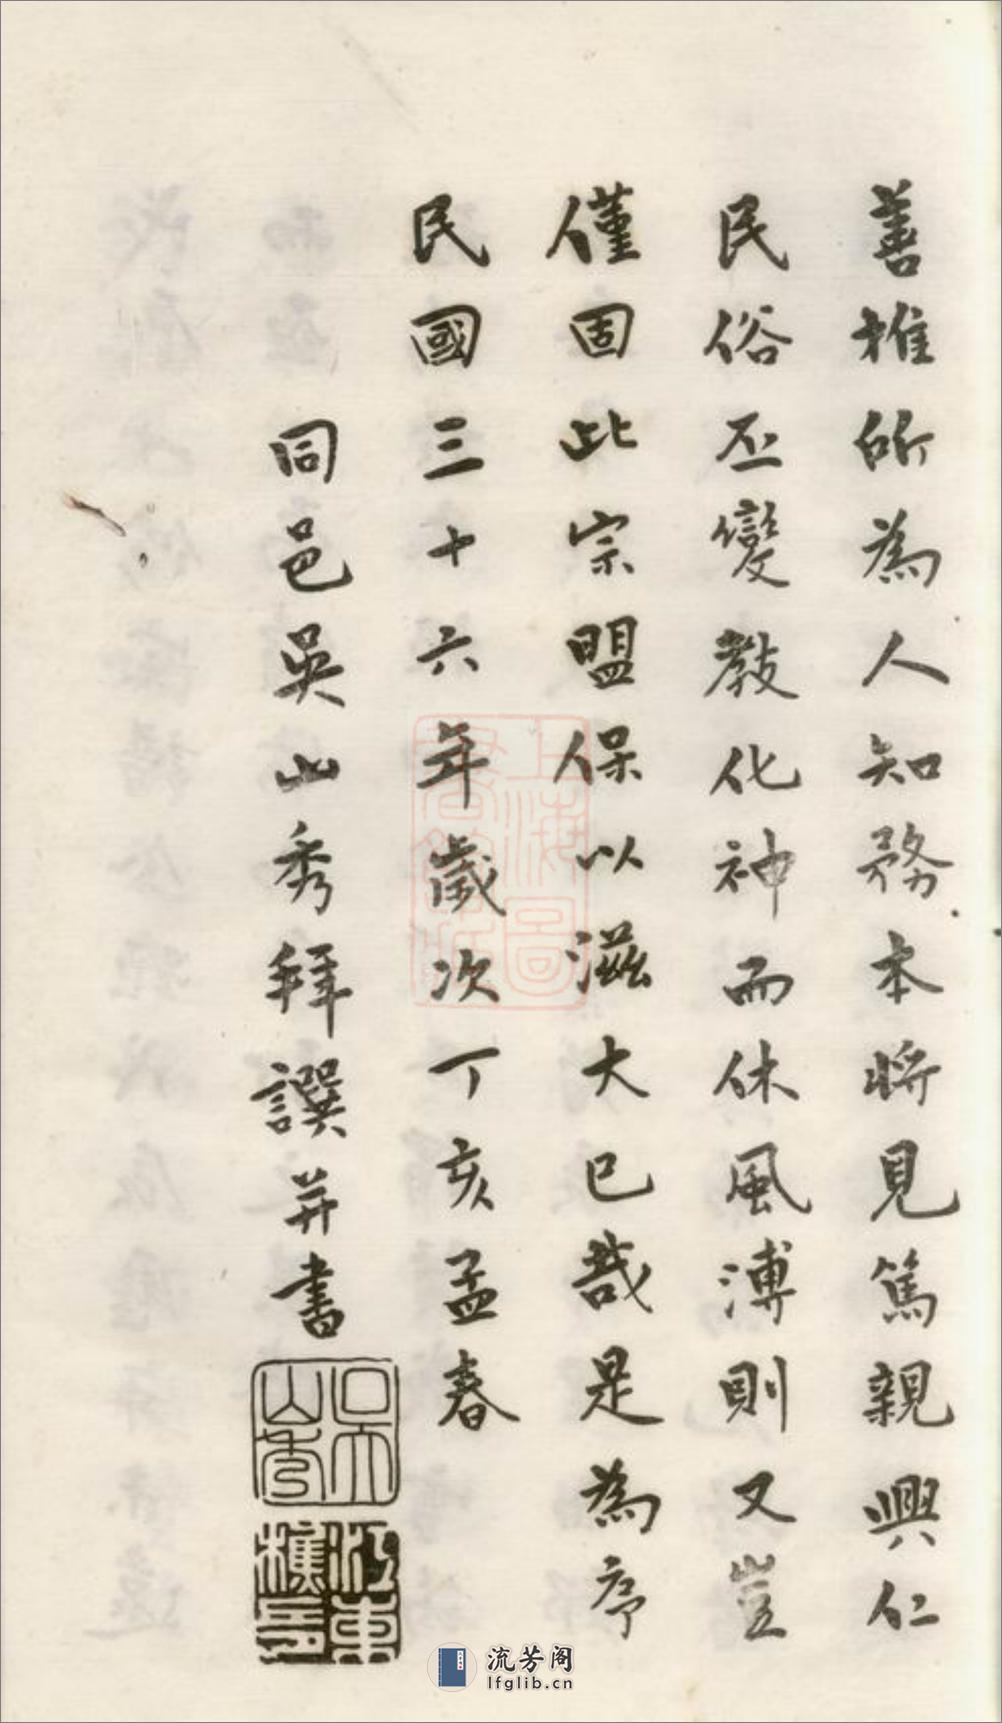 善推所為人知務本將見篤親興仁
民俗丕變教化神而休風溥則又豈
僅固此宗盟保以滋大已哉是為序
民國三十六年歲次丁亥孟春
同邑吳山秀拜譔并書
吳山秀
江東樵子
上海圖書館藏
流芳阁
lfglib.cn